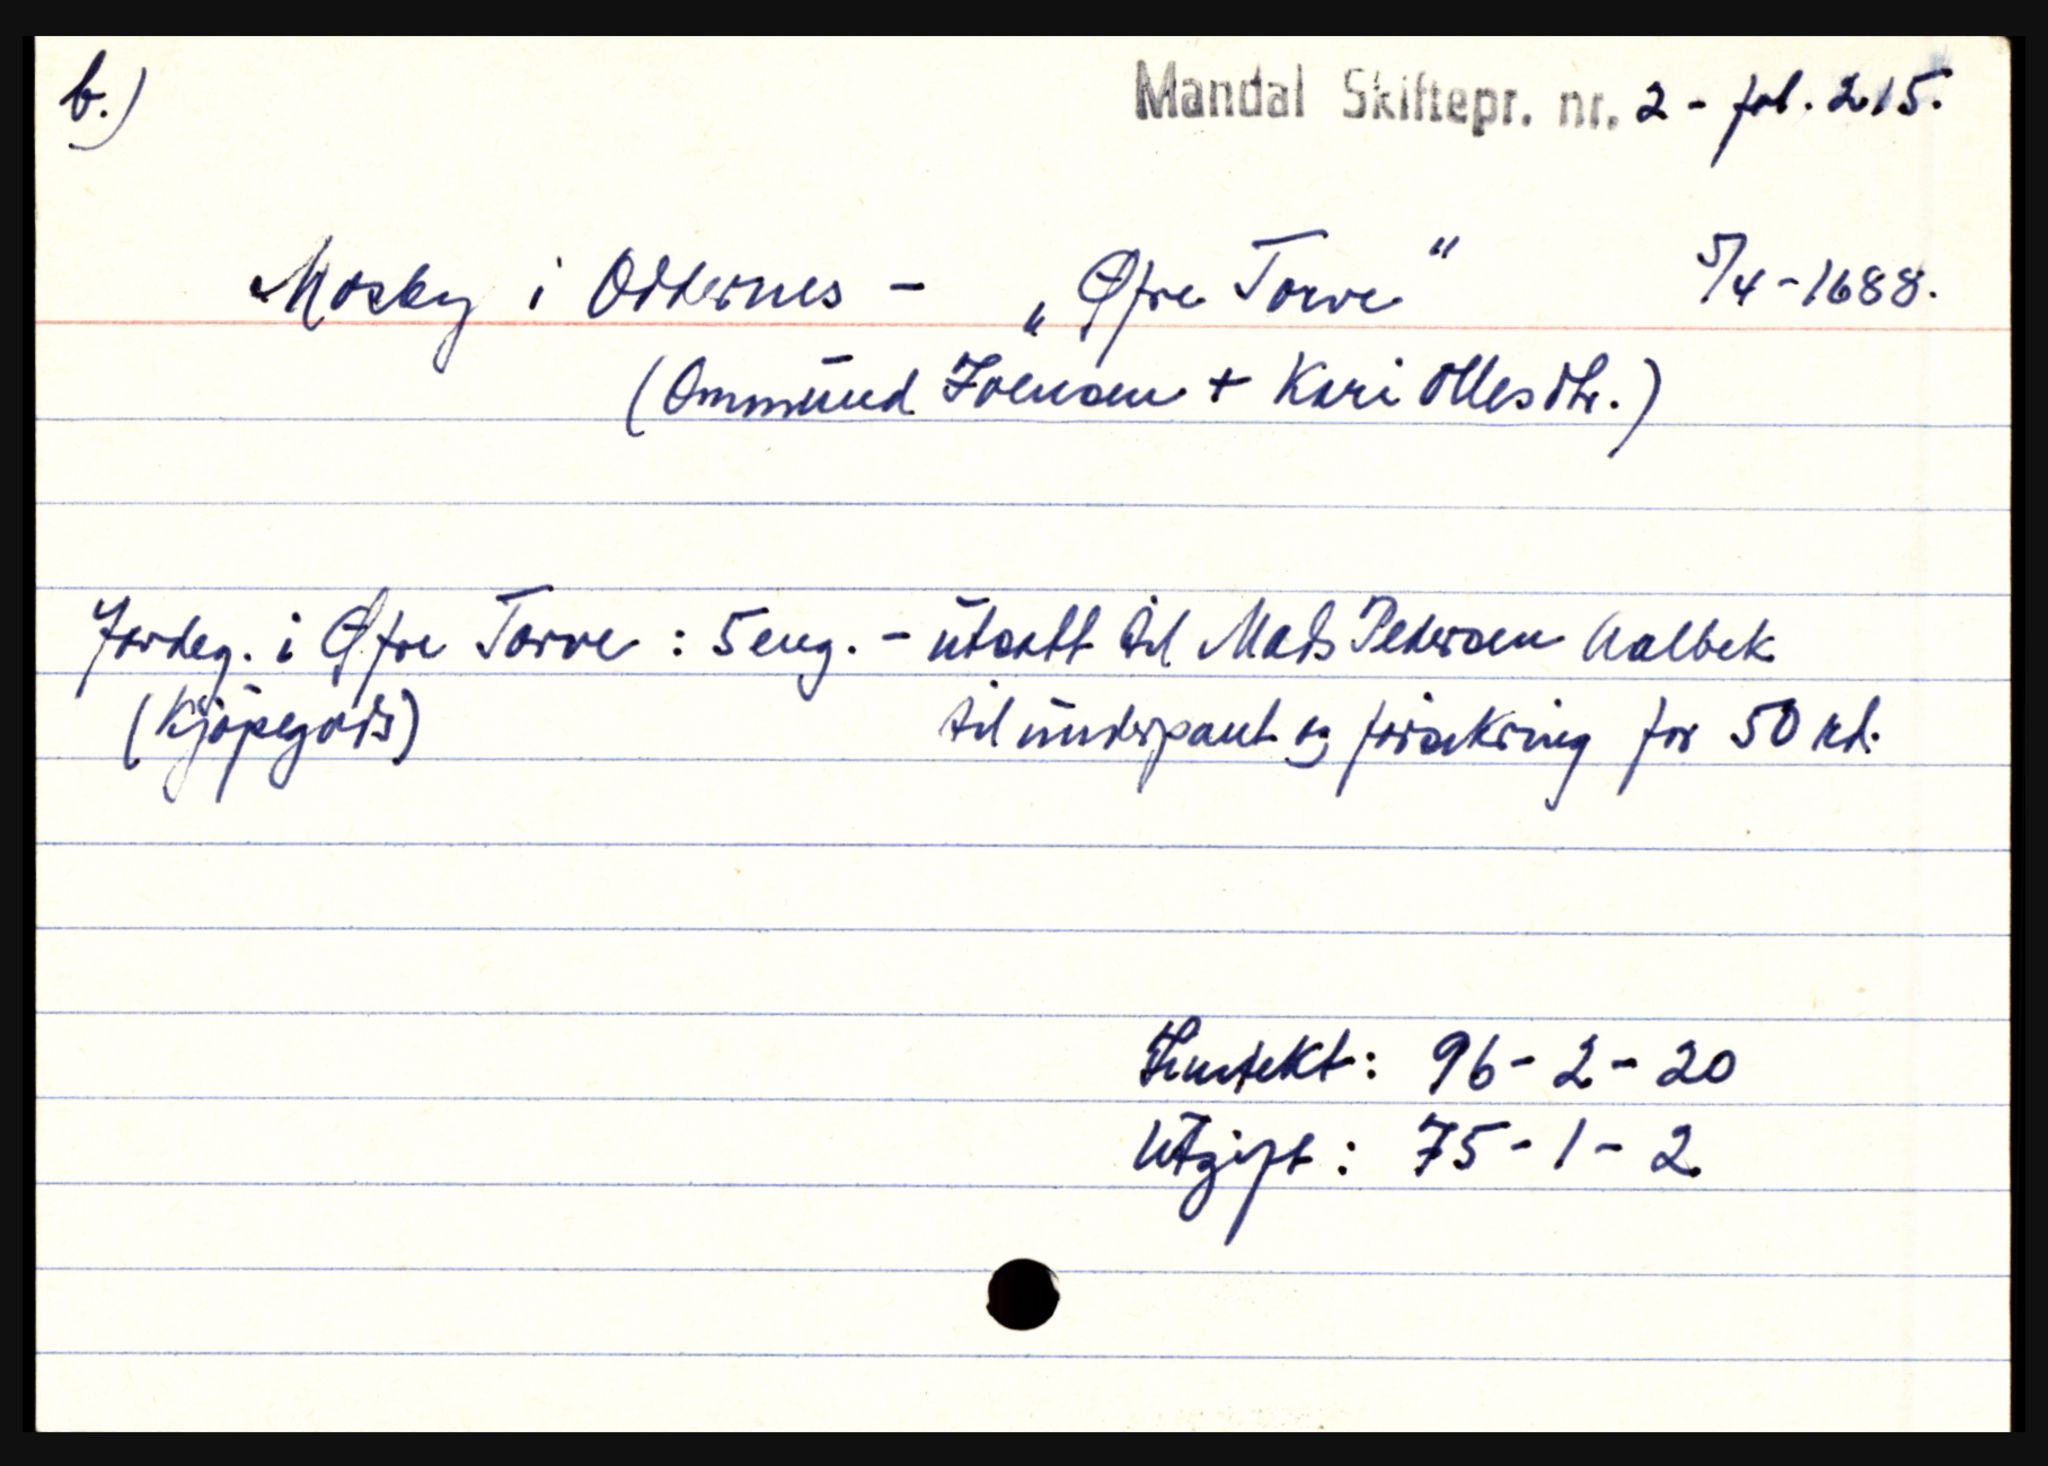 b.)
Mandal Skiftepr. nr. 2 - fol. 215.
Mosby i Oddernes - „Øfre Torve" 5/4-1688.
(Ommund Joensen + Kari Ollesdtr.)
Jordeg. i Øfre Torve : 5 eng. - utsatt til Mads Pedersen Aalbek
(Kjöpegods) til underpant og forsikring for 50 rd.
Inntekt: 96 - 2 - 20
Utgift: 75 - 1 - 2